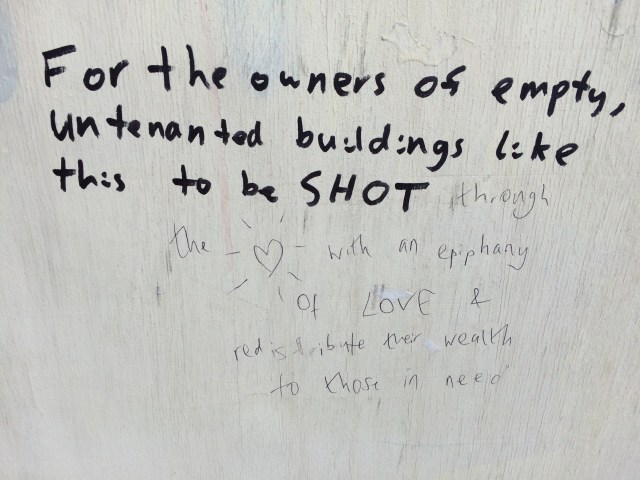 For the owners of empty,
untenanted buildings like
this to be SHOT through
the ♡ with an epiphany
of LOVE &
redistribute their wealth
to those in need